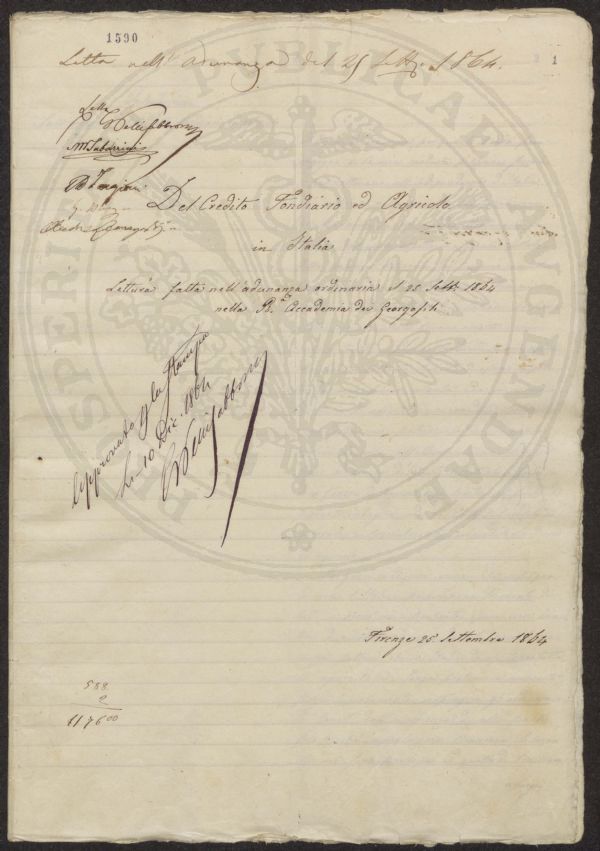 1590
Letta nell' adunanza del 25 Sett. 1864.
1
Letta
Pelli Fabbroni
M Tabarrini
Del Credito Fondiario ed Agricolo
in Italia
Lettura fatta nell' adunanza ordinaria d 25 Sett. 1864
nella R. Accademia dei Georgofili
Approvato per la Stampa
Li 10 Dic. 1864
Pelli Fabbroni
Firenze 25 Settembre 1864
588
2
1176 00
PROSPERITATI PUBLICAE AUGENDAE